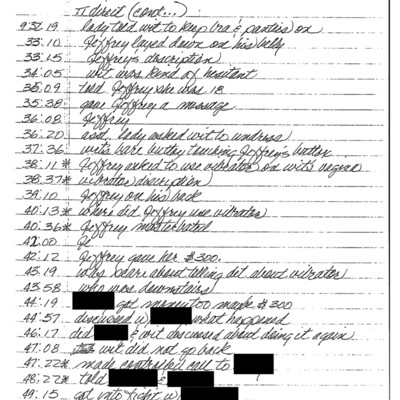 π direct (cont...):
9:32:19 lady told wit to keep bra & panties on
33:10 Jeffrey layed down on his belly
33:15 Jeffrey's description
34:05 wit was kind of hesitant
35:09 told Jeffrey she was 18
35:38 gave Jeffrey a massage
36:08 Jeffrey
36:20 asst. lady asked wit to undress
37:36 wit's bare buttox touching Jeffrey's buttox
38:11* Jeffrey asked to use vibrator on wit's vagina
38:37* vibrator description
39:10 Jeffrey on his back
40:13* where did Jeffrey use vibrator
40:36* Jeffrey masturbated
41:00 Je
42:12 Jeffrey gave her $300.
43:19 was scare about telling det about vibrator
43:58 who was downstairs
44:19 got to make $300
44:57 discussed w/ what happened
46:17 did & wit discussed about doing it again
47:08 wit did not go back
47:22* made controlled call to
48:27* told &
49:15 got into fight w/